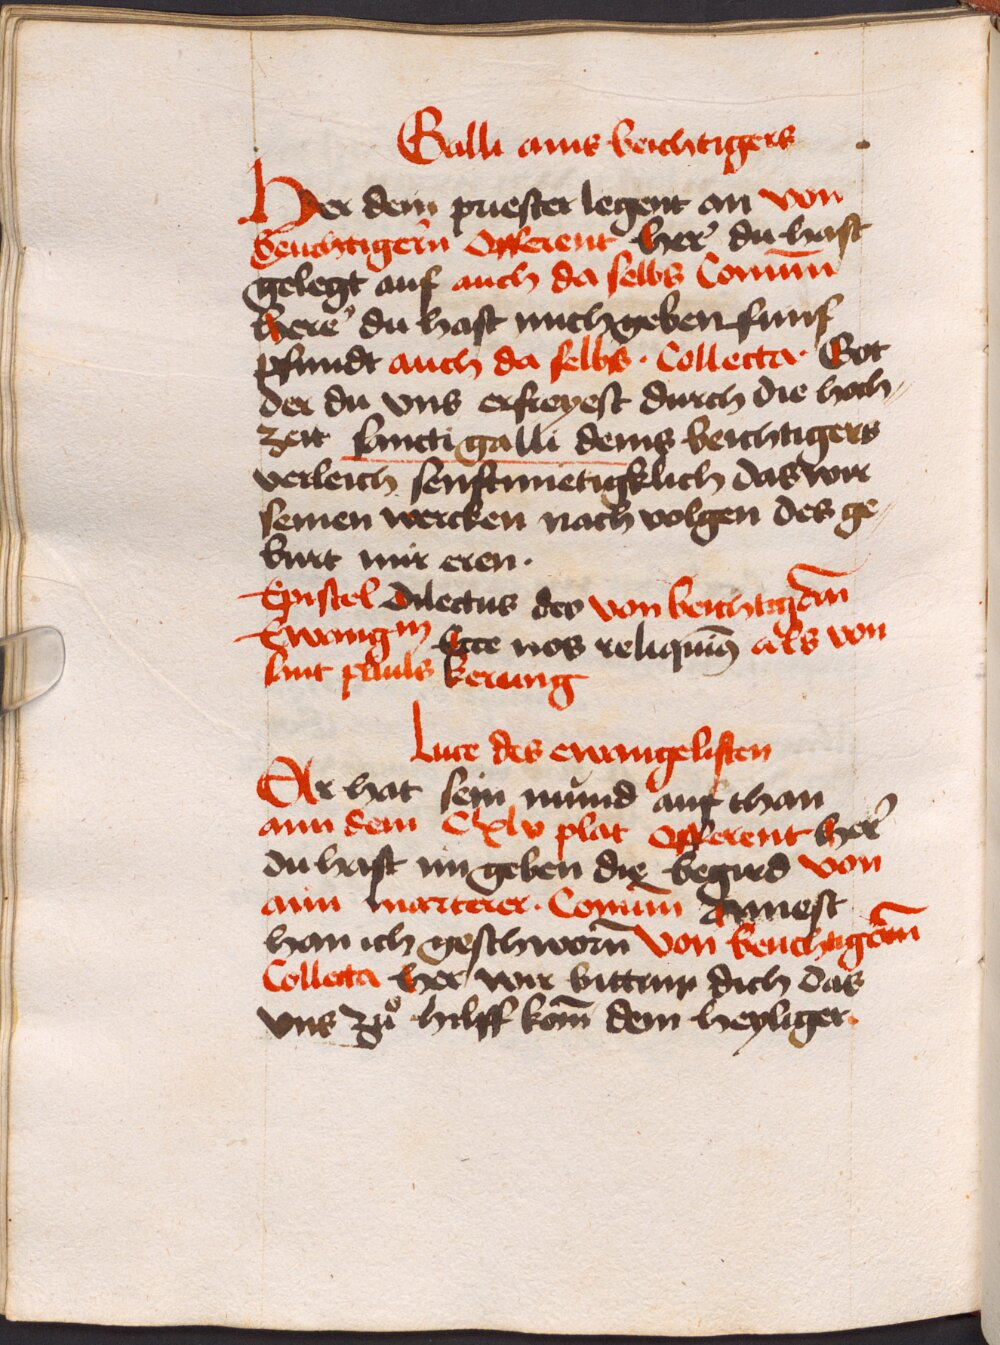 Galli ains beichtigers
Her dein priester legent an von
beichtigern Offerent her du hast
gelegt auf auch da selbs Comun
Here du hast mich geben funf
pfundt auch da selbs · Collecta · Got
der du uns erfreyest durch die hoch
zeit sancti galli deins beichtigers
verleich senftmietigklich das wir
seinen wercken nach volgen des ge
burt mir eren ·
Epistel Dilectus deo von beichtigern
Ewangm Ecce nos reliquim9 als von
sant pauls kerung
Luce des ewangelisten
Er hat sein mund auf than
ann dem Cxlv plat Offerent her
du hast im geben die begird von
aim marterer · Comun Ainest
han ich geschworn von beichtigern
Collecta her wir bitten dich das
uns zů hilff kom dein heyliger